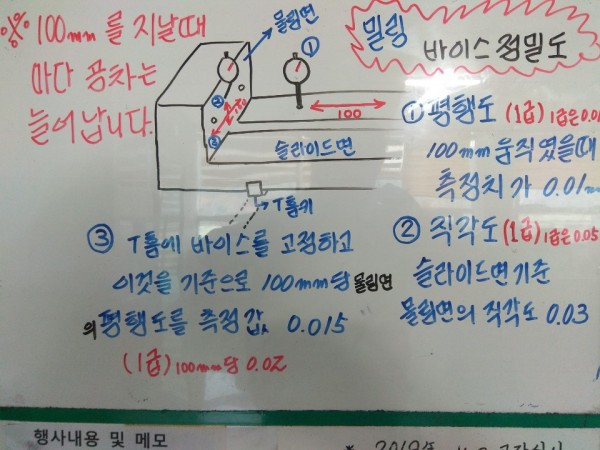 ※ 100mm를 지날때
마다 공차는
늘어납니다.
물림면
①
②
③
100
슬라이드면
T홈키
밀링
바이스정밀도
① 평행도 (1급) 1급은 0.01
100mm 움직였을때
측정치가 0.01m
② 직각도 (1급) 1급은 0.05
슬라이드면기준
물림면의 직각도 0.03
③ T홈에 바이스를 고정하고
이것을 기준으로 100mm당 물림면
의 평행도를 측정값 0.015
(1급) 100mm당 0.02
행사내용 및 메모